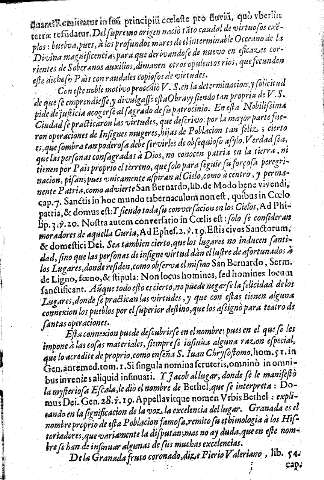 terræ refudatur. Del supremo origen nació tãto caudal de virtuosos exẽ-
plos: buelva, pues, à los profundos mares del interminable Oceano de la
Divina magnificencia, para que derivandose de nuevo en escasas cor-
rientes de Soberanos auxilios, dimanen otros opulentos rios, que fecunden
este dichoso Pais con raudales copiosos de virtudes.
Con este noble motivo procediò V. S. en la determinacion, y solicitud
de que se emprendiesse, y divulgasse esta Obra: y siendo tan propria de V. S.
pide de justicia acogerse al sagrado de su patrocinio. En esta Nobilissima
Ciudad se practicaron las virtudes, que descrivo: por la mayor parte fue-
ron operaciones de Insignes mugeres, hijas de Poblacion tan feliz; i cierto
es, que sombra tan poderosa debe servirles de obsequioso asylo. Verdad sea,
que las personas consagradas à Dios, no conocen patria en la tierra, ni
tienen por Pais proprio el terreno, que solo para seguir su forçosa peregri-
nacion, pisan; pues unicamente aspiran al Cielo, como à centro, y perma-
nente Patria, como advierte San Bernardo, lib. de Modo bene vivendi,
cap. 7. Sanctis in hoc mundo tabernaculum non est, quibus in Cœlo
patria, & domus est: Y siendo toda su conversacion en los Cielos, Ad Phi-
lip. 3. ℣. 20. Nostra autem conversatio in Cœlis est: solo se consideran
moradores de aquella Curia, Ad Ephes. 2. ℣. 19. Estis cives Sanctorum,
& domestici Dei. Sea tambien cierto, que los lugares no inducen santi-
dad, sino que las personas de insigne virtud dàn el lustre de afortunados à
los Lugares, donde residen, como observa el mismo San Bernardo, Serm.
de Ligno, fœno, & stipula. Non locus homines, sed homines locum
sanctificant. Aunque todo esto es cierto, no puede negarse la felicidad de los
Lugares, donde se practican las virtudes, y que con estas tienen alguna
connexion los pueblos por el superior destino, que los assignò para teatro de
santas operaciones.
Esta connexion puede descubrirse en el nombre: pues en el que se les
impone à las cosas materiales, siempre se insinùa alguna razon especial,
que lo acredite de proprio, como enseña S. Juan Chrysostomo, hom. 51. in
Gen. antemed. tom. 1. Si singula nomina scruteris, omninò in omni-
bus invenies aliquid insinuari. Y Jacob al lugar, donde se le manifestò
la mysteriosa Escala, le diò el nombre de Bethel, que se interpreta: Do-
mus Dei. Gen. 28. ℣. 19. Appellavitque nomen Urbis Bethel: expli-
cando en la significacion de la voz, la excelencia del lugar. Granada es el
nombre proprio de esta Poblacion famosa, remito su ethimologia à los His-
toriadores, que variamente la disputan; mas no ay duda, que en este nom-
bre se han de insinuar algunas de sus muchas excelencias.
De la Granada fruto coronado, dize Pierio Valeriano, lib. 54.
cap.